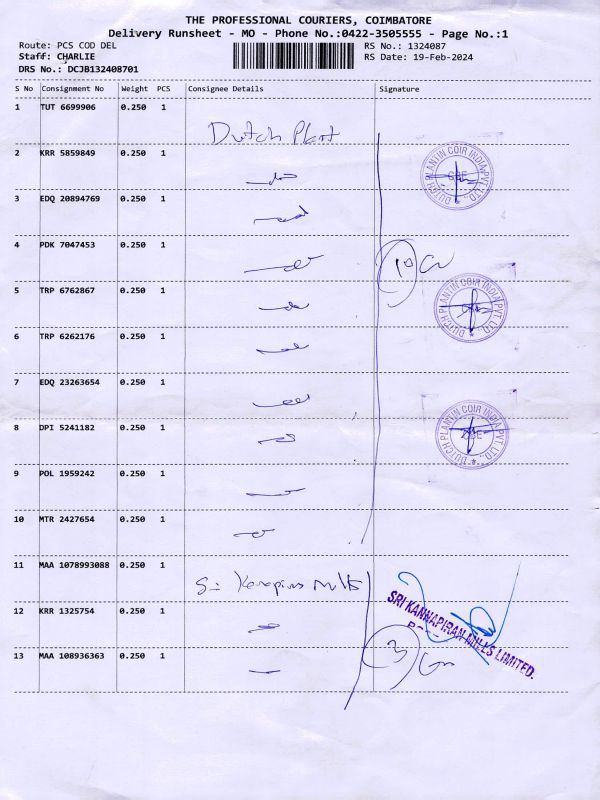 THE PROFESSIONAL COURIERS, COIMBATORE
Delivery Runsheet - MO - Phone No.:0422-3505555 - Page No.:1
Route: PCS COD DEL
RS No.: 1324087
Staff: CHARLIE
RS Date: 19-Feb-2024
DRS No.: DCJB132408701
S No Consignment No Weight PCS Consignee Details Signature
1 TUT 6699906 0.250 1
Dutch Plant
2 KRR 5859849 0.250 1
DUTCH PLANTIN COIR INDIA PVT. LTD.,
3 EDQ 20894769 0.250 1
4 PDK 7047453 0.250 1
10
5 TRP 6762867 0.250 1
DUTCH PLANTIN COIR INDIA PVT. LTD.,
6 TRP 6262176 0.250 1
7 EDQ 23263654 0.250 1
8 DPI 5241182 0.250 1
DUTCH PLANTIN COIR INDIA PVT. LTD.,
9 POL 1959242 0.250 1
10 MTR 2427654 0.250 1
11 MAA 1078993088 0.250 1
SRI KANNAPIRAN MILLS LIMITED.
12 KRR 1325754 0.250 1
3
13 MAA 108936363 0.250 1